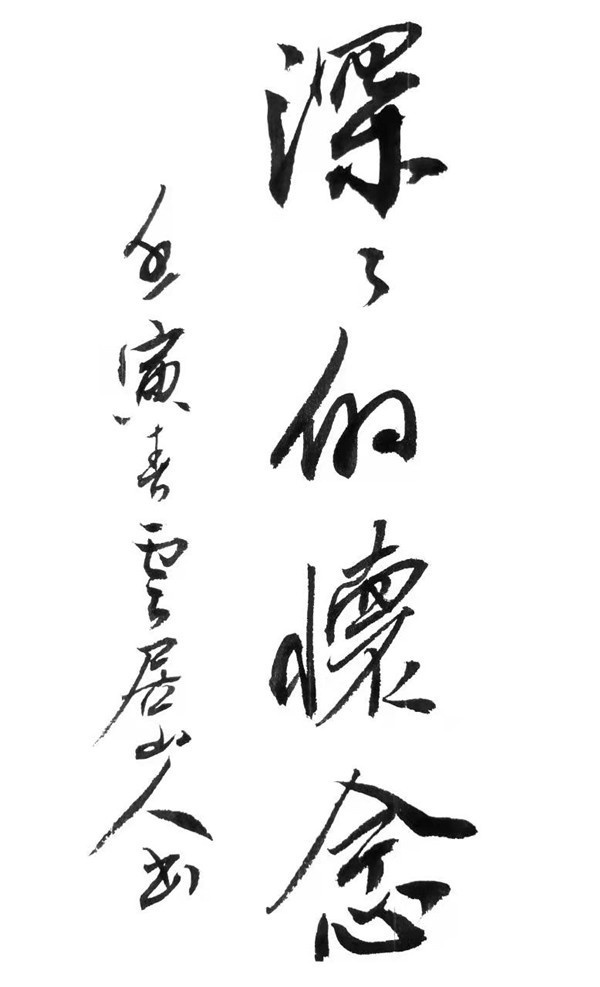 深々的懷念
壬寅春雲居山人书